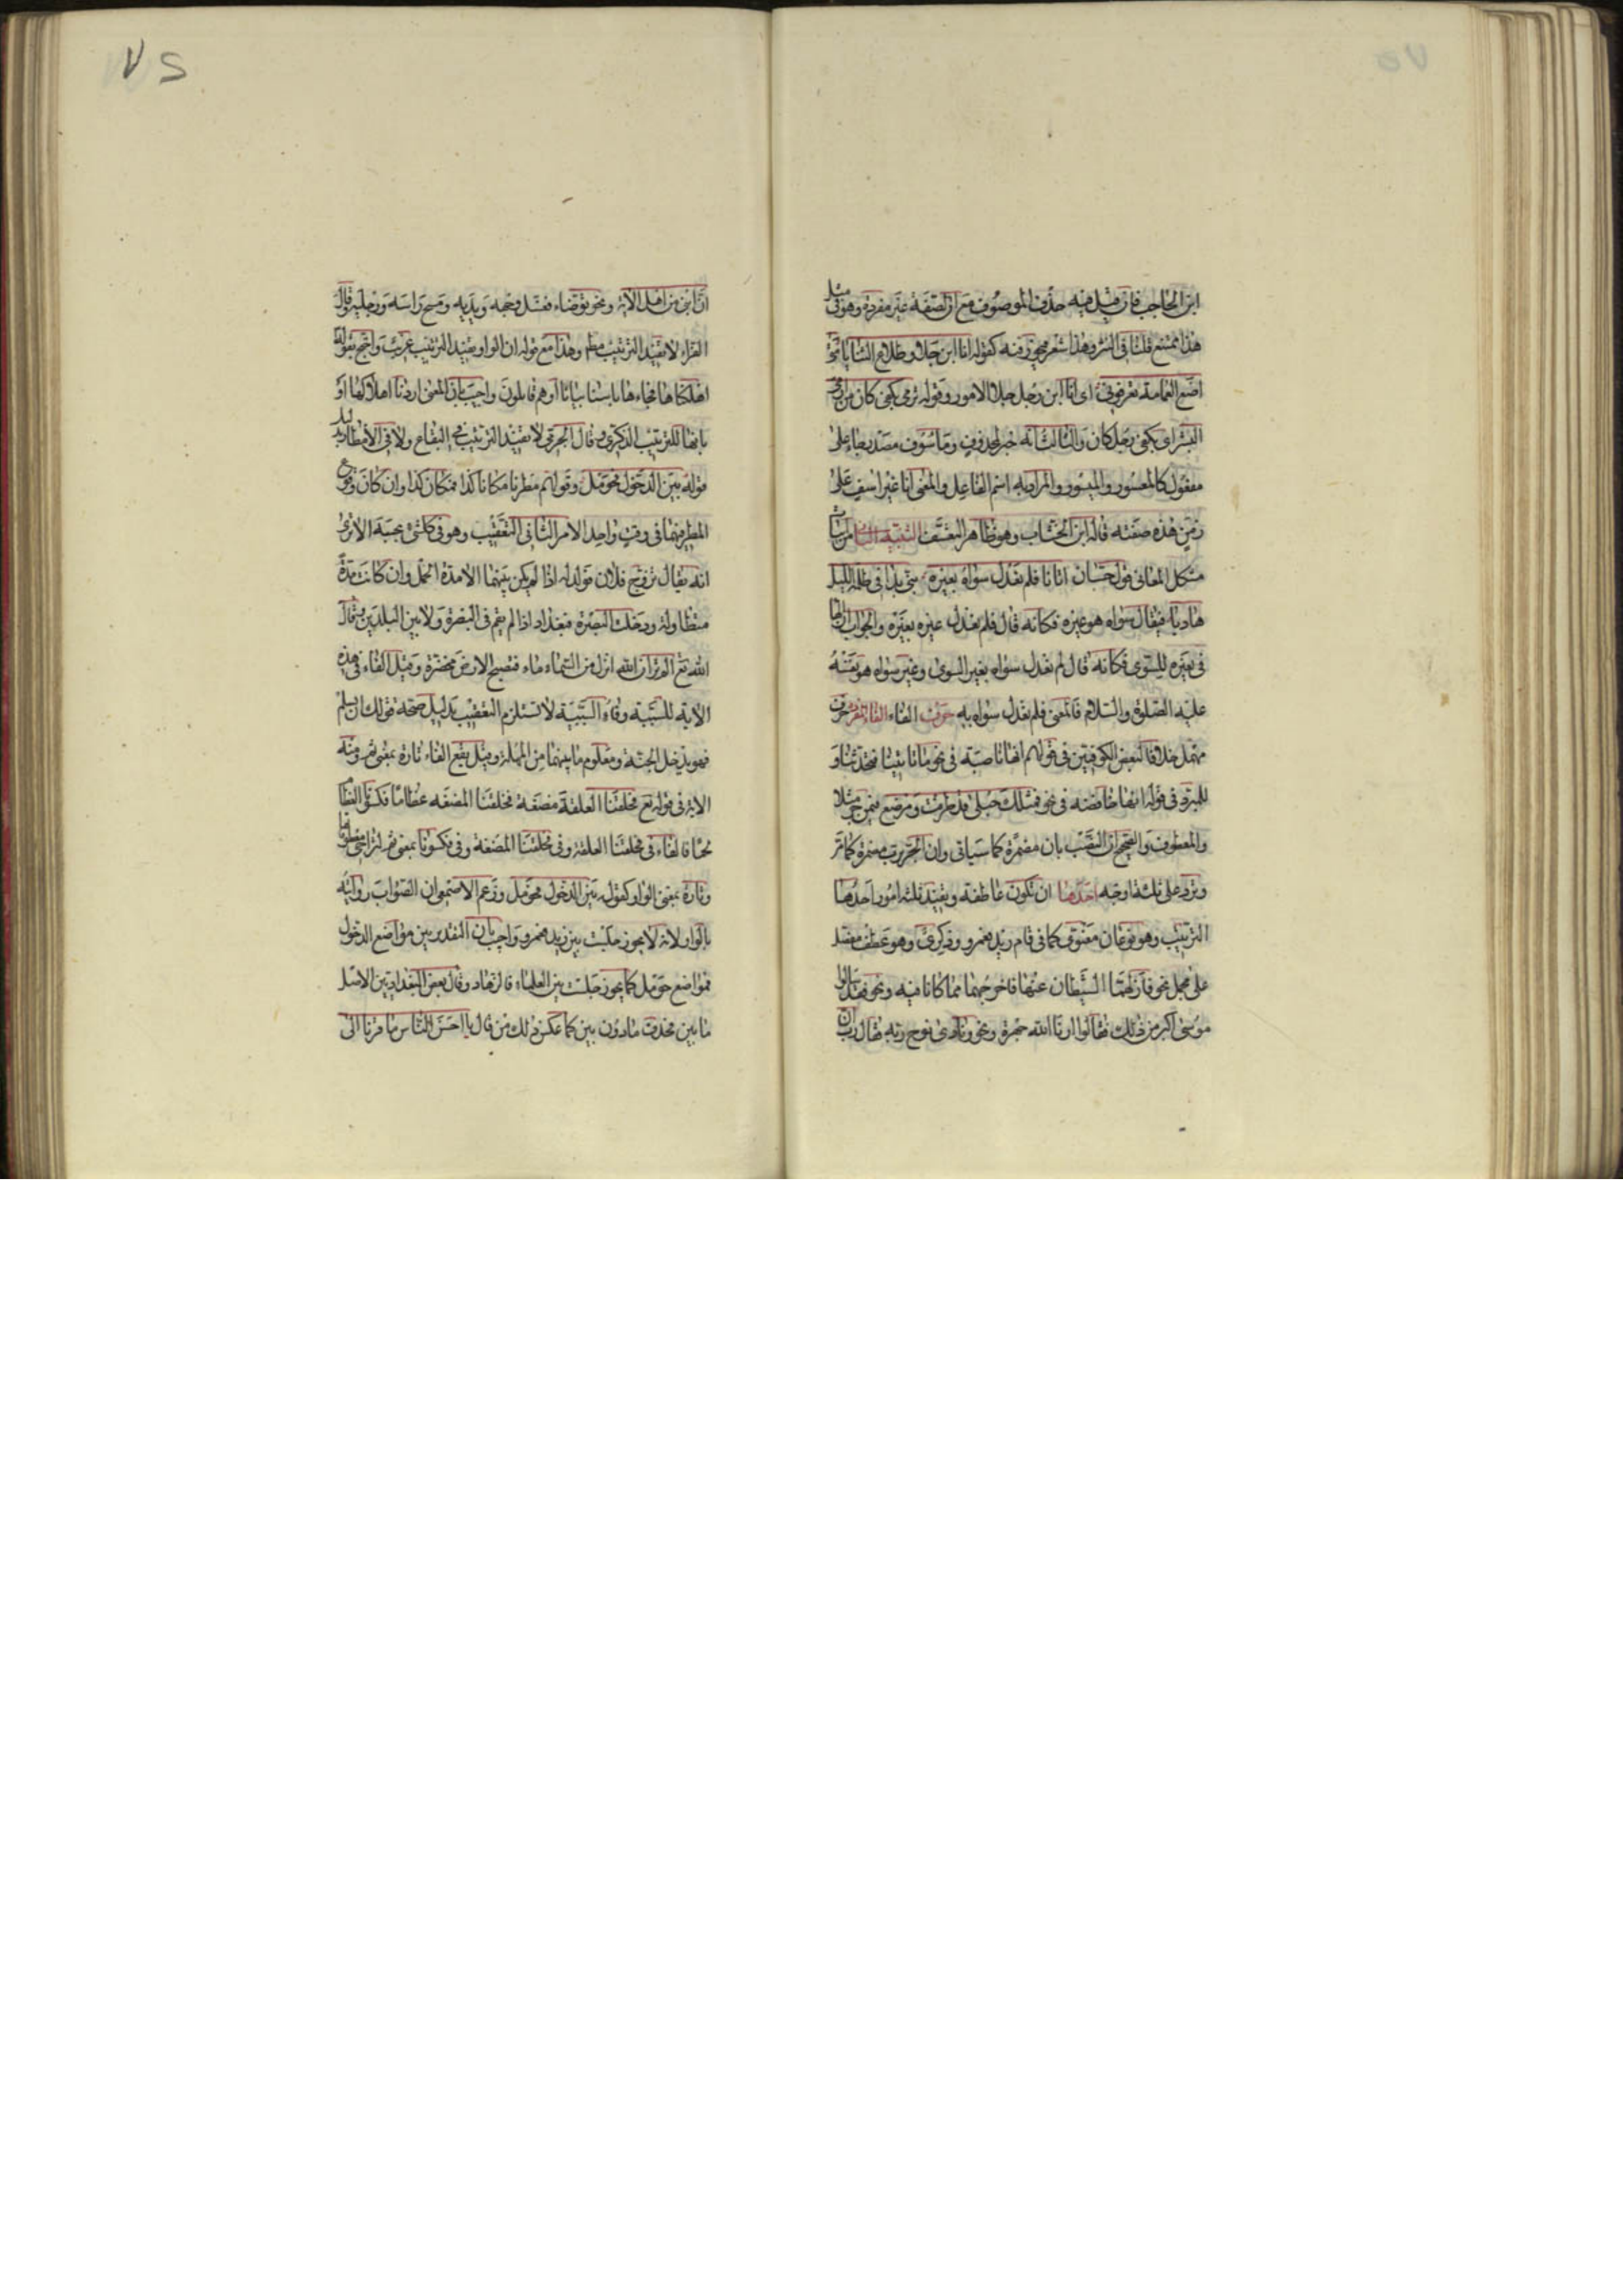 ابن الحاجب فان قيل فيه حذف الموصوف مع ان الصفة غير مفردة وهو فى مثل
هذا ممتنع قلنا فى النثر وهذا شعر فيجوز فيه كقوله انا ابن جلا وطلاع الثنايا متى
اضع العمامة تعرفونى اى انا ابن رجل جلا الامور وقوله ترمى بكفى كان من ارمى
البشر اى بكفى رجل كان والثالث انه خبر لمحذوف وماسوف مصدر جاء على
مفعول كالمعسور والميسور والمراد به اسم الفاعل والمعنى انا غير اسف على
زمن هذه صفته قاله ابن الخشاب وهو ظاهر التعسف التنبيه الثانى من ابيات
مشكل المعانى قول حسان اتانا فلم نعدل سواه بغيره نبى بدا فى ظلمة الليل
هاديا فيقال سواه هو غيره فكانه قال فلم نعدل غيره بغيره والجواب ان الهاء
فى بغيره للسوى فكانه قال لم نعدل سواه بغير السوى وغير سواه هو نفسه
عليه الصلوة والسلام فالمعنى فلم نعدل سواه به حرف الفاء الفاء المفردة حرف
مهمل خلافا لبعض الكوفيين فى قولهم انها ناصبة فى نحو ما تاتينا فتحدثنا و
للمبرد فى قوله انها خافضة فى نحو فمثلك حبلى قد طرقت ومرضع فيمن جر مثلا
والمعطوف والصحيح ان النصب بان مضمرة كما سياتى وان الجر برب مضمرة كما مر
وترد على ثلثة اوجه احدها ان تكون عاطفة وتفيد ثلثة امور احدها
الترتيب وهو نوعان معنوى كما فى قام زيد فعمرو وذكرى وهو عطف مفصل
على مجمل نحو فازلهما الشيطان عنها فاخرجهما مما كانا فيه ونحو فقد سالوا
موسى اكبر من ذلك فقالوا ارنا الله جهرة ونحو ونادى نوح ربه فقال رب ان
ان ابنى من اهلى الاية ونحو توضاء فغسل وجهه ويديه ومسح راسه ورجليه وقال
الفراء لا تفيد الترتيب مطلقا وهذا مع قوله ان الواو تفيد الترتيب غريب واحتج بقوله
اهلكناها فجاءها باسنا بياتا او هم قايلون واجيب بان المعنى اردنا اهلاكها او
بانها للترتيب الذكرى وقال الجرمى لا تفيد الترتيب فى البقاع ولا فى الامطار بدليل
قوله بين الدخول فحومل وقولهم مطرنا مكان كذا فمكان كذا وان كان وقوع
المطر فيهما فى وقت واحد الامر الثانى التعقيب وهو فى كل شئ بحسبه الا ترى
انه يقال تزوج فلان فولد له اذا لم يكن بينهما الا مدة الحمل وان كانت مدة
متطاولة ودخلت البصرة فبغداد اذا لم يقم فى البصرة ولا بين البلدين وقال
الله تع الم تر ان الله انزل من السماء ماء فتصبح الارض مخضرة وقيل الفاء فى هذه
الاية للسببية وفاء السببية لا تستلزم التعقيب بدليل صحة قولك ان يسلم
فهو يدخل الجنة ومعلوم ما بينهما من المهلة وقيل تقع الفاء تارة بمعنى ثم ومنه
الاية فى قوله تع فخلقنا العلقة مضغة فخلقنا المضغة عظاما فكسونا العظام
لحما فالفاء فى فخلقنا العلقة وفى فخلقنا المضغة وفى فكسونا بمعنى ثم لتراخى معطوفها
وتارة بمعنى الواو كقوله بين الدخول فحومل وزعم الاصمعى ان الصواب روايته
بالواو لانه لا يجوز جلست بين زيد فعمرو واجيب بان التقدير بين مواضع الدخول
فمواضع حومل كما يجوز جلست بين العلماء فالزهاد وقال بعض البغداديين الاصل
ما بين فحذفت ما دون بين كما عكس ذلك من قال يا احسن الناس ما قرنا الى